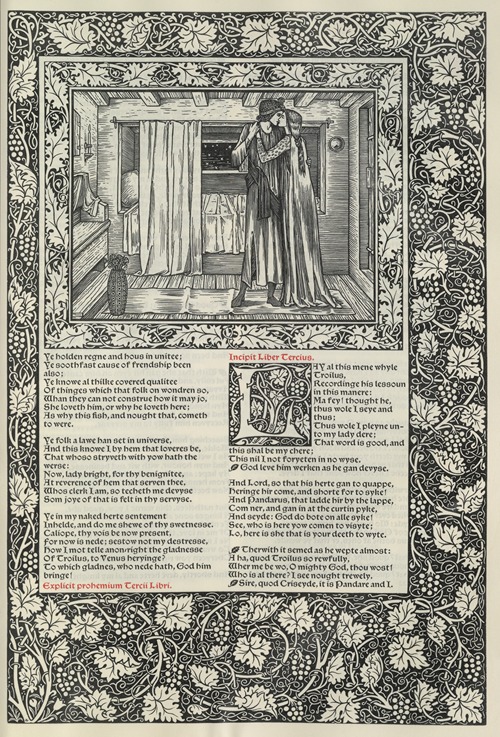 Ye holden regne and hous in unitee;
Ye soothfast cause of frendship been
also;
Ye knowe al thilke covered qualitee
Of thinges which that folk on wondren so,
Whan they can not construe how it may jo,
She loveth him, or why he loveth here;
As why this fish, and nought that, cometh
to were.
Ye folk a lawe han set in universe,
And this knowe I by hem that loveres be,
That whoso stryveth with yow hath the
werse:
Now, lady bright, for thy benignitee,
At reverence of hem that serven thee,
Whos clerk I am, so techeth me devyse
Som joye of that is felt in thy servyse.
Ye in my naked herte sentement
Inhelde, and do me shewe of thy swetnesse.
Caliope, thy vois be now present,
For now is nede; sestow not my destresse,
How I mot telle anon-right the gladnesse
Of Troilus, to Venus heryinge?
To which gladnes, who nede hath, God him
bringe!
Explicit prohemium Tercii Libri.
Incipit Liber Tercius.
LAY al this mene whyle
Troilus,
Recordinge his lessoun
in this manere:
Ma fey! thought he,
thus wole I seye and
thus;
Thus wole I pleyne un-
to my lady dere;
That word is good, and
this shal be my chere;
This nil I not foryeten in no wyse.
God leve him werken as he gan devyse.
And Lord, so that his herte gan to quappe,
Heringe hir come, and shorte for to syke!
And Pandarus, that ladde hir by the lappe,
Com ner, and gan in at the curtin pyke,
And seyde: God do bote on alle syke!
See, who is here yow comen to visyte;
Lo, here is she that is your deeth to wyte.
Therwith it semed as he wepte almost:
A ha, quod Troilus so rewfully,
Wher me be wo, O mighty God, thou wost!
Who is al there? I see nought trewely.
Sire, quod Criseyde, it is Pandare and I.